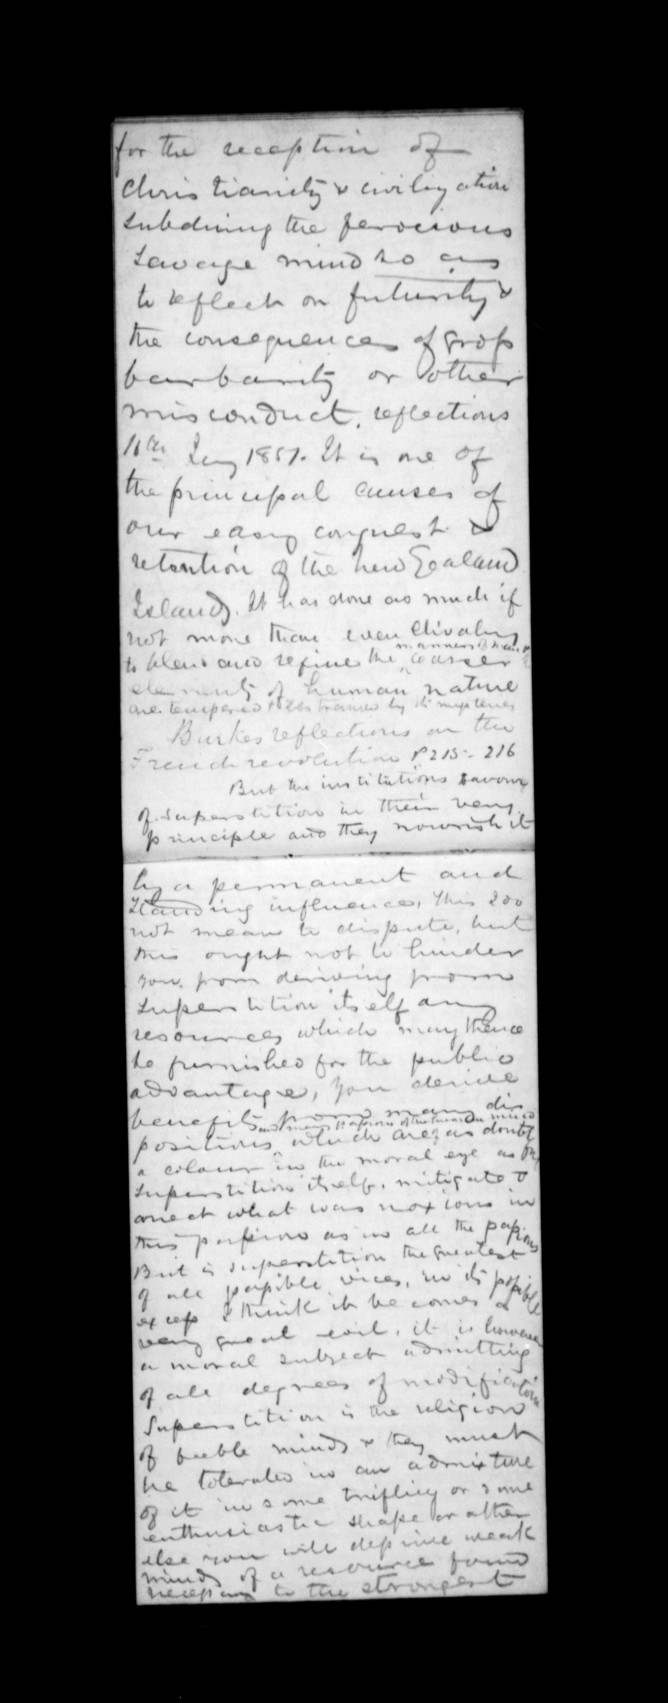 for the reception of
Christianity & civilization
subduing the ferocious
savage mind so as
to reflect on futurity &
the consequences of gross
barbarity or other
misconduct. reflections
16th Jany 1851. It is one of
the principal causes of
our easy conquest &
retention of the New Zealand
Islands. It has done as much if
not more than even Chivalry
manners of man &
to blend and refine the coarser
elements of human nature
are tempered & restrained by its mysteries
Burkes reflections on the
French revolution P 215 - 216
But the institutions savour
of superstition in their very
principle and they nourish it
by a permanent and
standing influence, this I do
not mean to dispute, but
this ought not to hinder
you from deriving from
superstition itself any
resources which may thence
be furnished for the public
advantage, you derive
benefits from many dis
and many passions of the human mind
positions which are of as doubtful
a colour in the moral eye as
superstition itself. mitigate &
what was noxious in
this passion as in all the passions
But is superstition the greatest
of all possible vices, in its possible
excess I think it becomes a
very great evil, it is however
a moral subject admitting
of all degrees of modification
Superstition is the religion
of feeble minds & they must
be tolerated in an admixture
of it in some trifling or some
enthusiastic shape or other
else you will deprive weak
minds of a resource found
necessary to the strongest